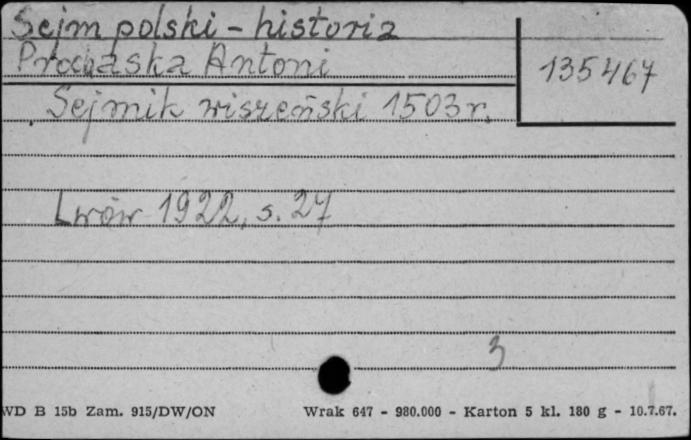 Sejm polski - historia
Prochaska Antoni
135467
Sejmik wiszeński 1503 r.
Lwów 1922, s. 27
3
WD B 15b Zam. 915/DW/ON Wrak 647 - 980.000 - Karton 5 kl. 180 g - 10.7.67.